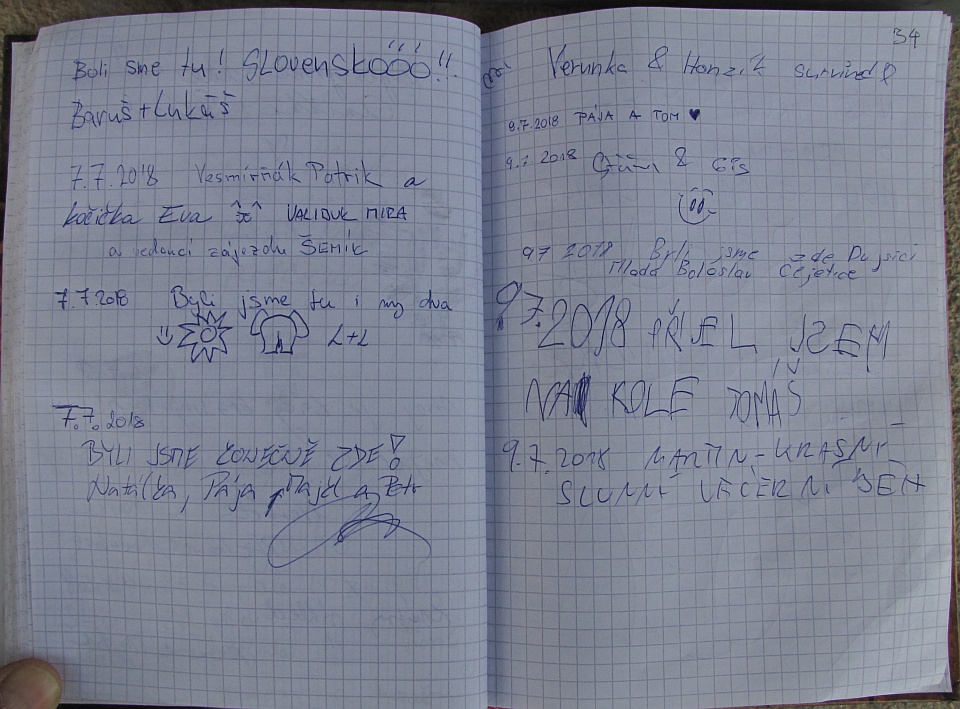 Boli sme tu! SLOVENSKÓÓÓ!!
Baruš + Lukáš
7.7.2018 Vesmírňák Patrik a
kočička Eva VALIDUK MIRA
a vedoucí zájezdu ŠEMÍK
7.7.2018 Byli jsme tu i my dva
L+L
7.7.2018
BYLI JSME KONEČNĚ ZDE!
Natálka, Pája, Majd a Petr
34
Verunka & Honzík survived
9.7.2018 PÁJA A TOM ♥
9.7.2018 &
9.7.2018 Byli jsme zde
Mladá Boleslav Čejetice
9.7.2018 PŘIJEL JSEM
NA KOLE TOMÁŠ
9.7.2018 MARTIN - KRÁSNÝ
SLUNNÝ VEČERNÍ BĚH